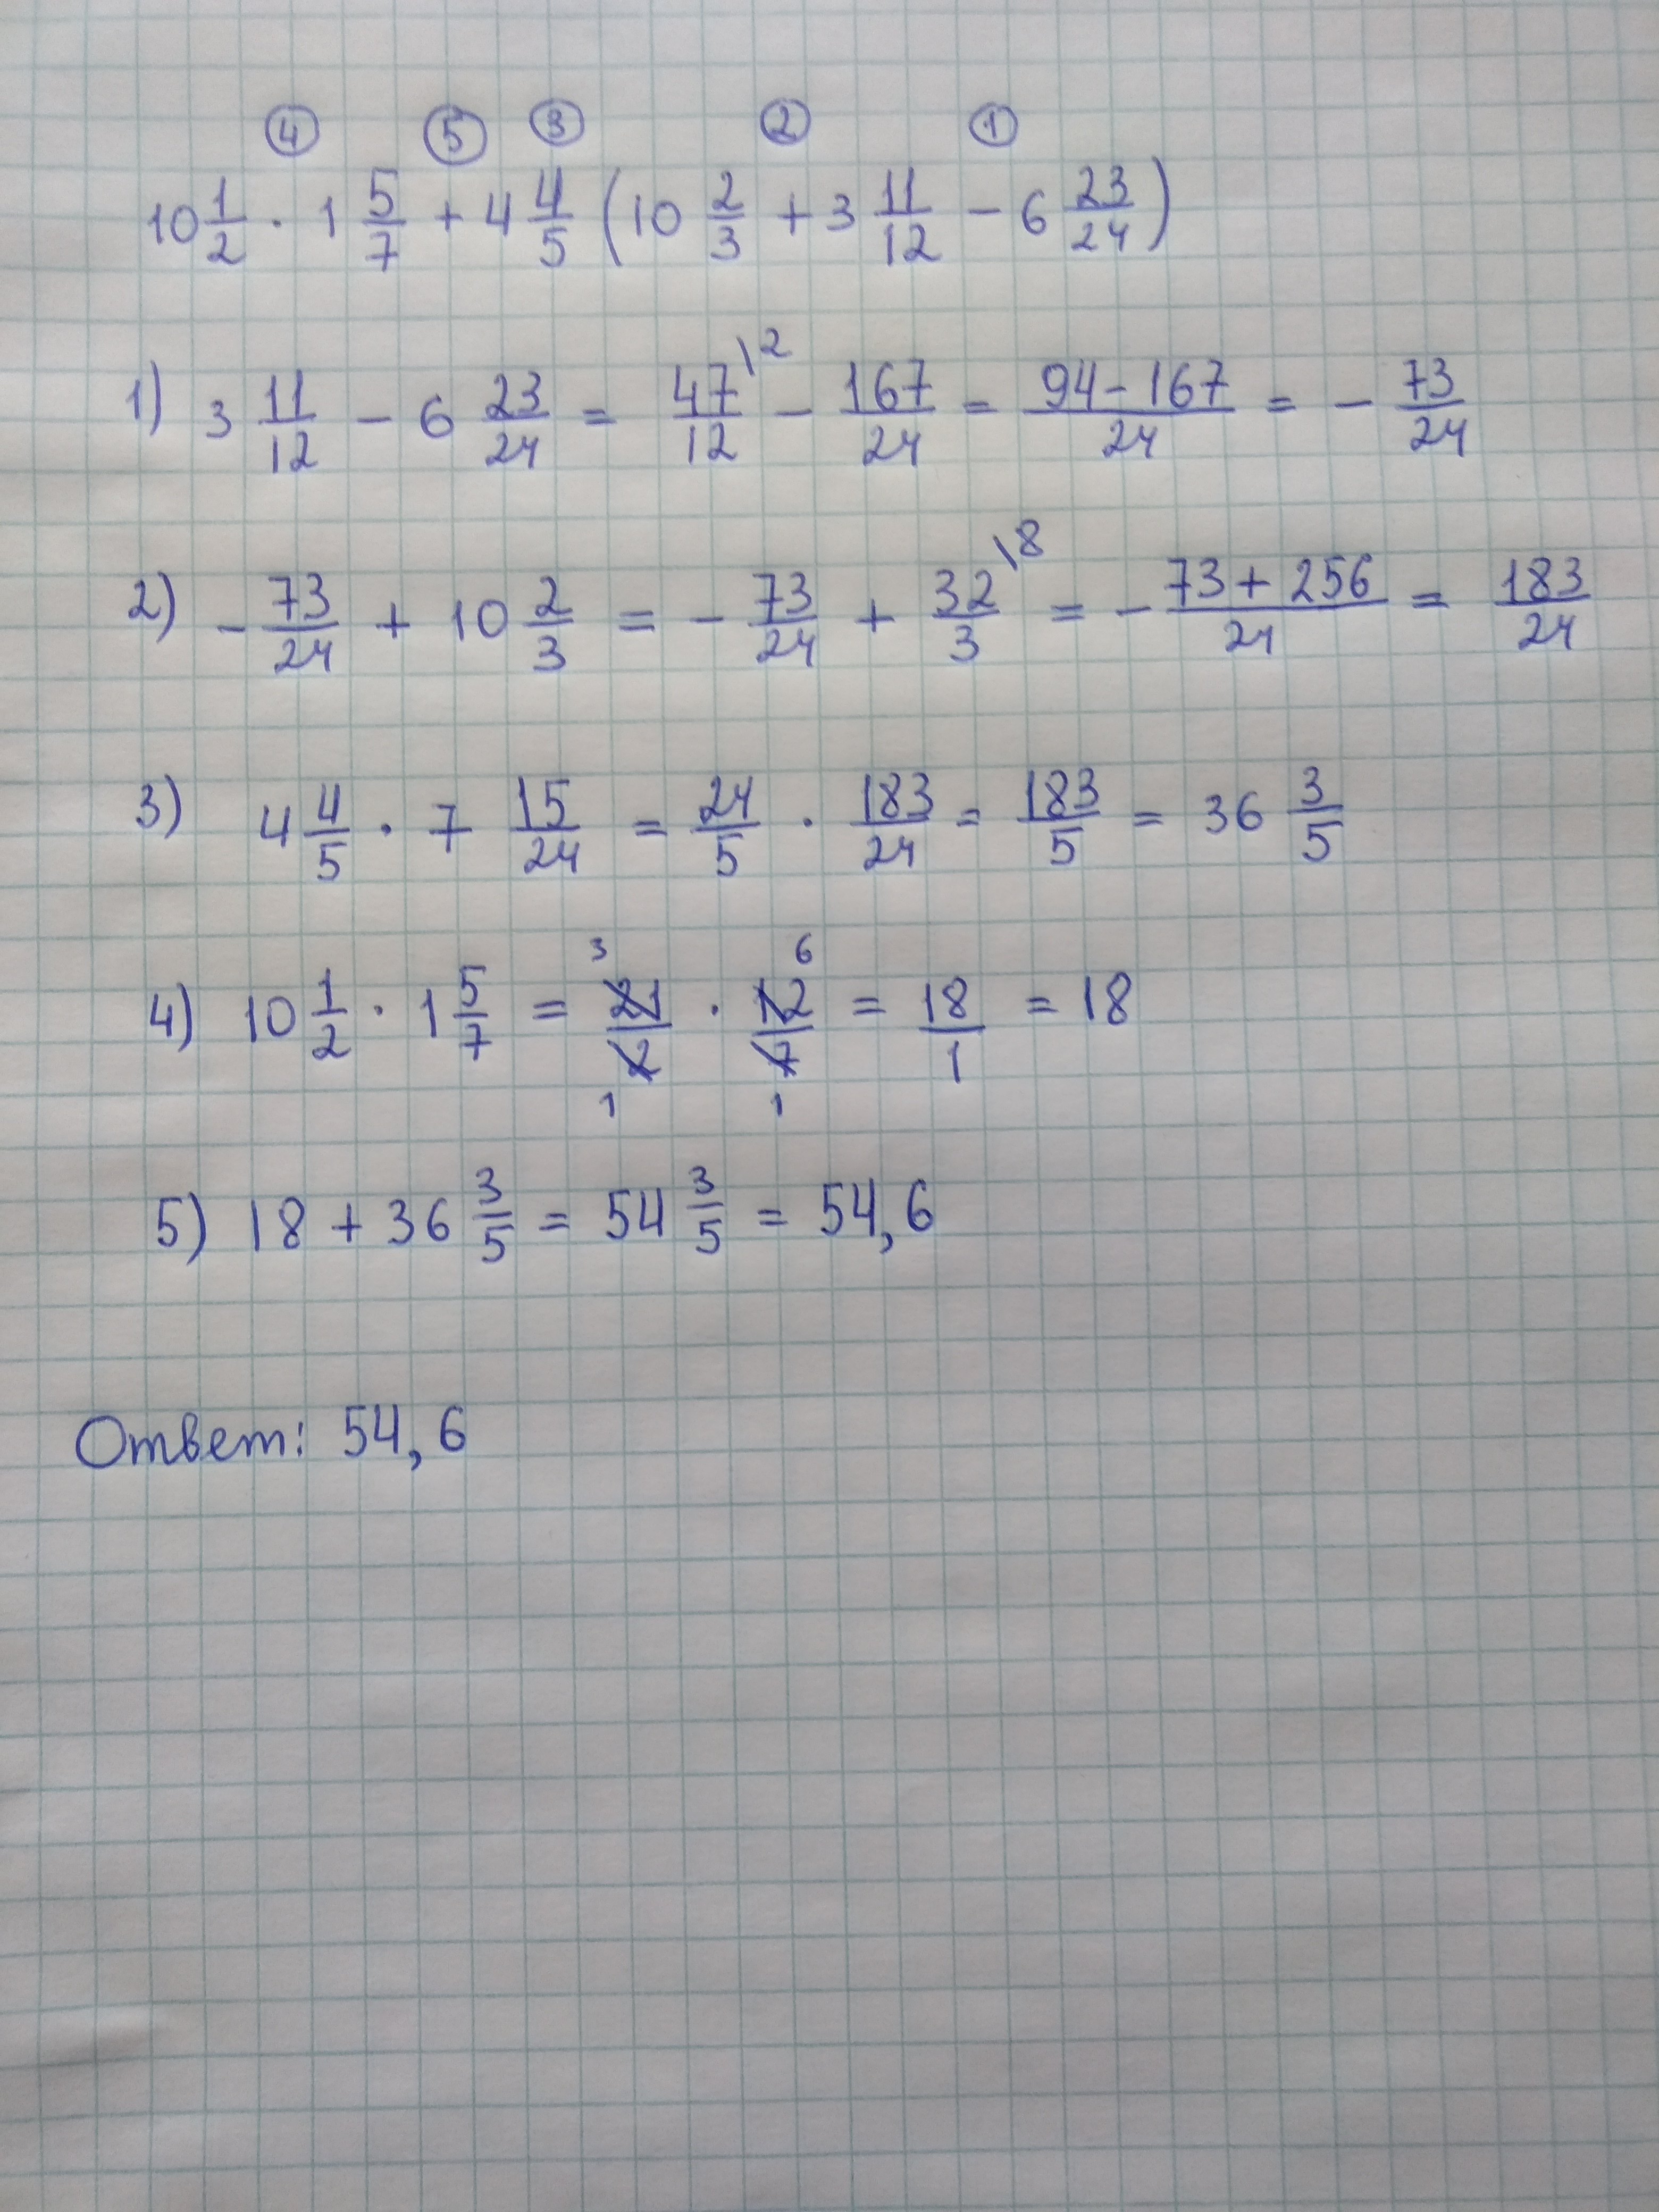 ④ ⑤ ③ ② ①
10 1/2 · 1 5/7 + 4 4/5 (10 2/3 + 3 11/12 - 6 23/24)
1) 3 11/12 - 6 23/24 = 47\2/12 - 167/24 = 94-167/24 = - 73/24
2) - 73/24 + 10 2/3 = - 73/24 + 32\8/3 = - 73+256/24 = 183/24
3) 4 4/5 · 7 15/24 = 24/5 · 183/24 = 183/5 = 36 3/5
3 6
4) 10 1/2 · 1 5/7 = 21/2 · 12/7 = 18/1 = 18
1 1
5) 18 + 36 3/5 = 54 3/5 = 54,6
Ответ: 54,6